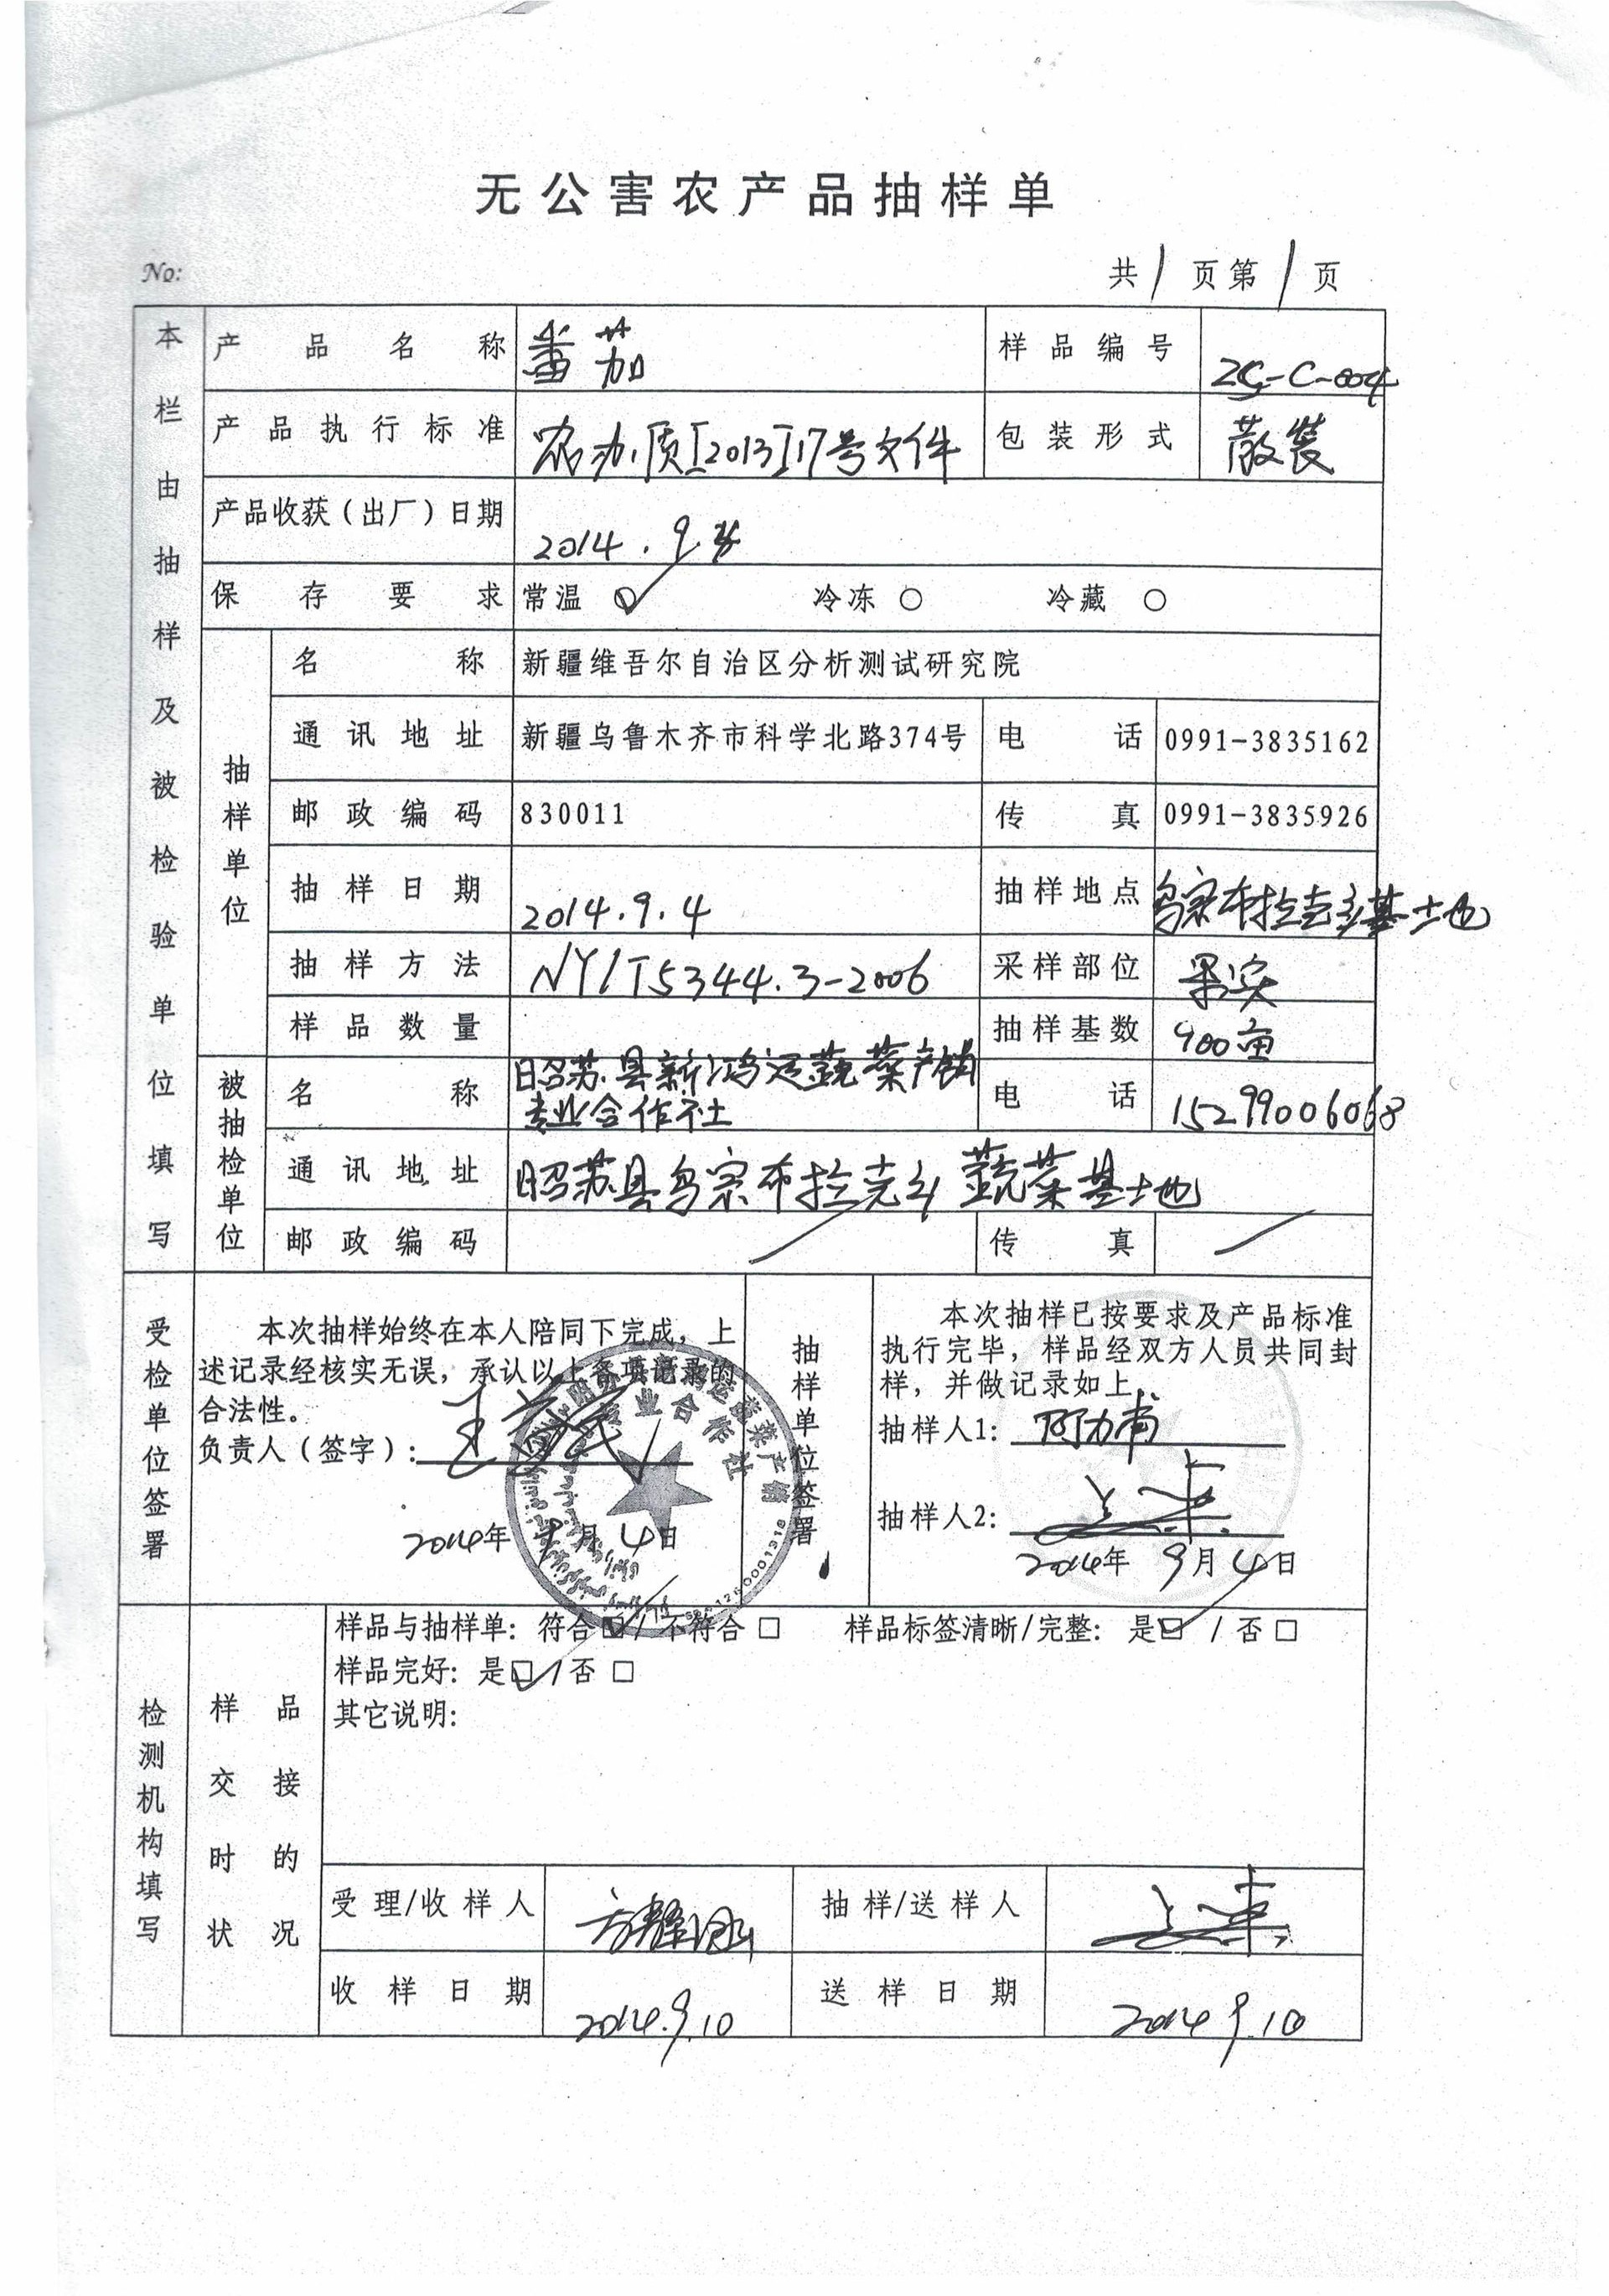 无公害农产品抽样单
No:
共 1 页第 1 页
本栏由抽样及被检验单位填写
产品名称 番茄 样品编号 ZS-C-004
产品执行标准 农办质[2013]17号文件 包装形式 散装
产品收获(出厂)日期 2014.9.
保存要求 常温 冷冻 ○ 冷藏 ○
抽样单位
名称 新疆维吾尔自治区分析测试研究院
通讯地址 新疆乌鲁木齐市科学北路374号 电话 0991-3835162
邮政编码 830011 传真 0991-3835926
抽样日期 2014.9.4 抽样地点 乌宗布拉克乡基地
抽样方法 NY/T5344.3-2006 采样部位 果实
样品数量 抽样基数 900亩
被抽检单位
名称 昭苏县新鸿运蔬菜产销专业合作社 电话 15299006068
通讯地址 昭苏县乌宗布拉克乡蔬菜基地
邮政编码 / 传真 /
受检单位签署
本次抽样始终在本人陪同下完成,上
述记录经核实无误,承认以上各项记录的
合法性。
负责人(签字): 王
2014年 9月 4日
运蔬菜产销
专业合作社
抽样单位签署
本次抽样已按要求及产品标准
执行完毕,样品经双方人员共同封
样,并做记录如上.
抽样人1: 阿力甫
抽样人2:
2014年 9月 4日
检测机构填写
样品交接时的状况
样品与抽样单: 符合☑/不符合 □ 样品标签清晰/完整: 是☑ /否 □
样品完好: 是☑/否 □
其它说明:
受理/收样人 抽样/送样人
收样日期 2014.9.10 送样日期 2014 9.10